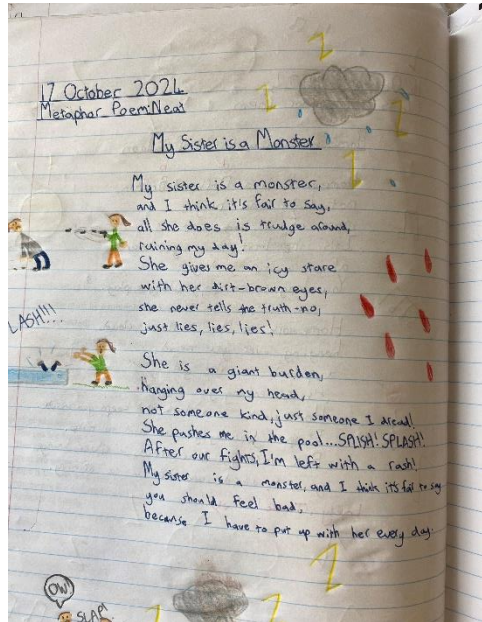 17 October 2024
Metaphor Poem: Neat
My Sister is a Monster
My sister is a monster,
and I think it's fair to say,
all she does is trudge around,
ruining my day!
She gives me an icy stare
with her dirt-brown eyes,
she never tells the truth-no,
just lies, lies, lies!
LASH!!!
She is a giant burden,
hanging over my head,
not someone kind, just someone I dread!
She pushes me in the pool...SPLISH! SPLASH!
After our fights, I'm left with a rash!
My sister is a monster, and I think it's fair to say
you should feel bad,
because I have to put up with her every day.
OW!
SLAP!